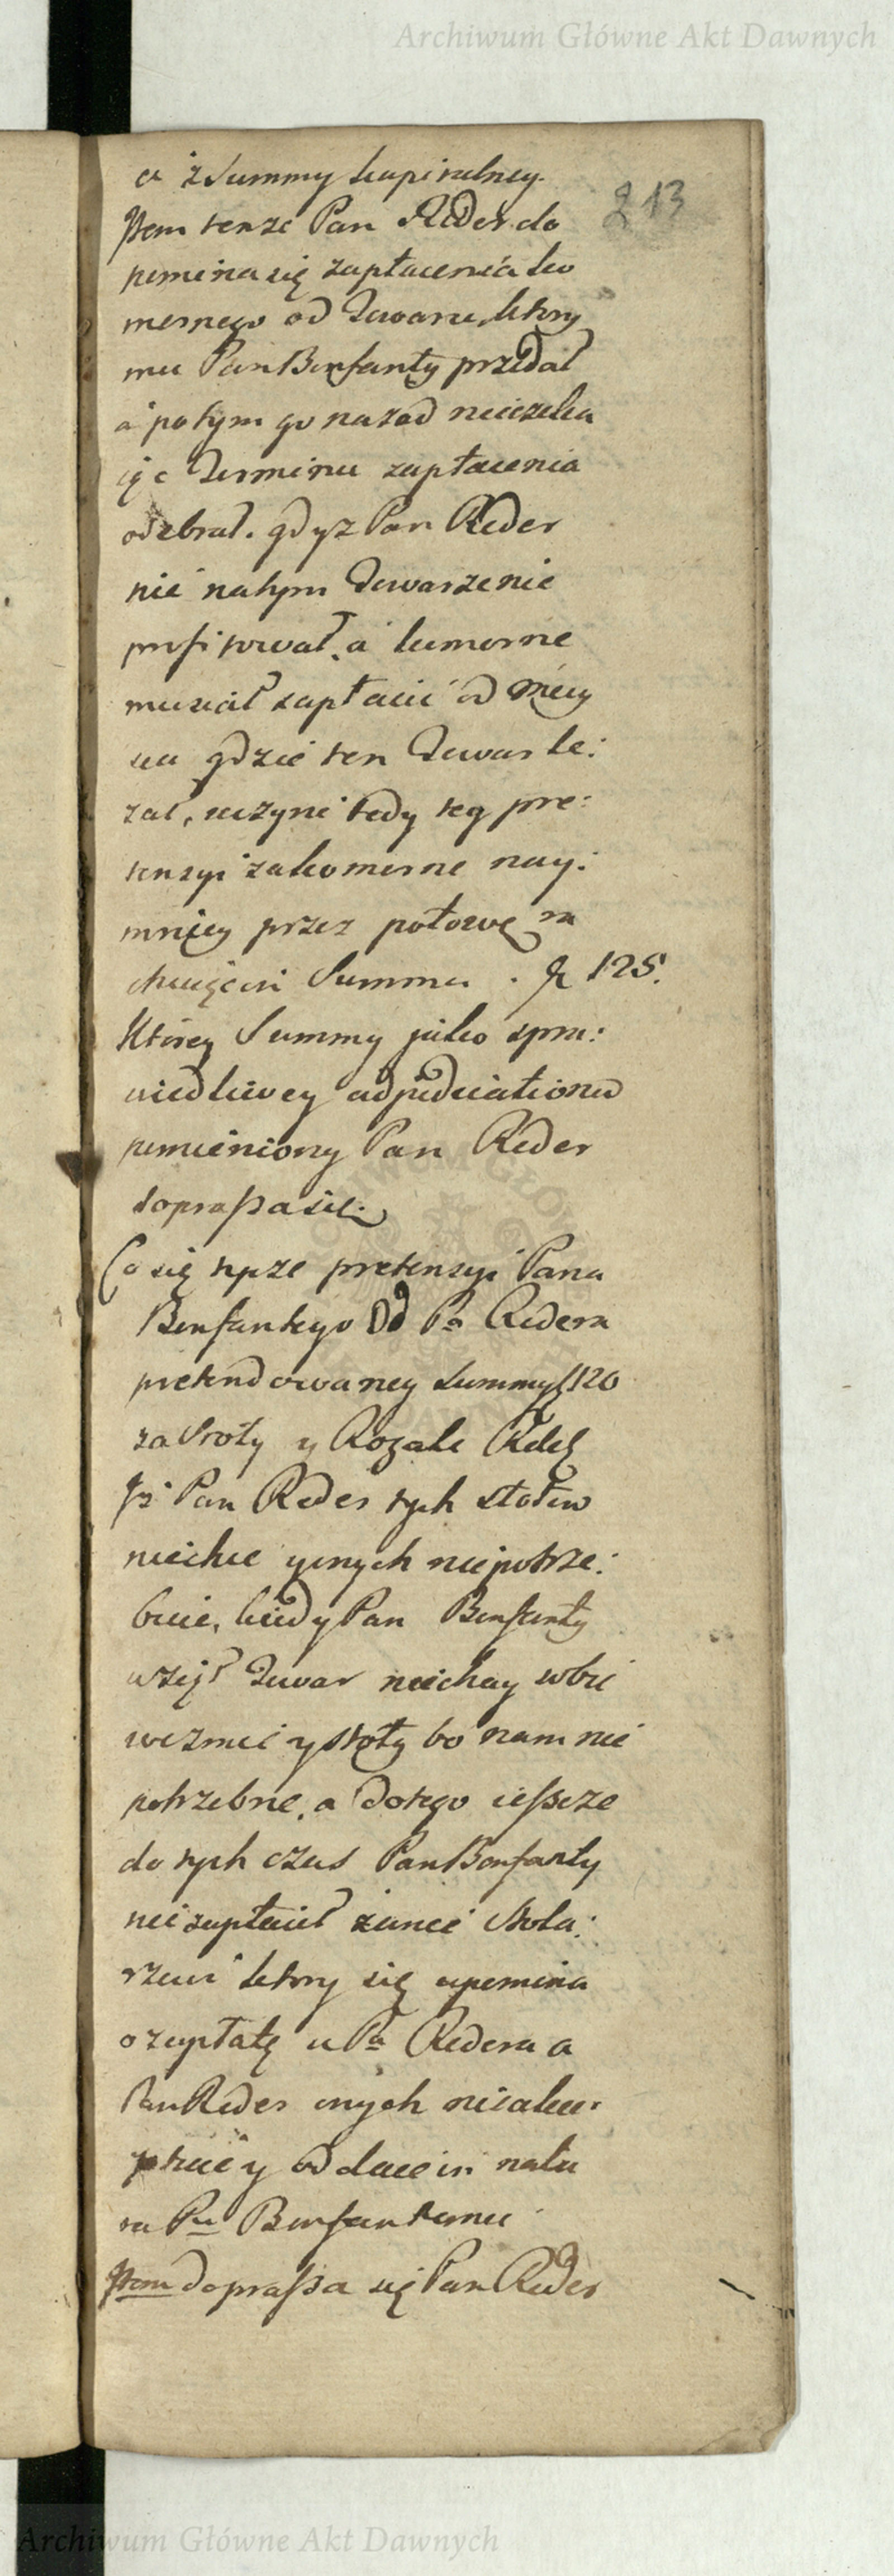 Archiwum Główne Akt Dawnych
a z Summy kapitalney.
213
Item tenze Pan Reder do
pomina się zapłacenia ko
mornego od Towaru, ktory
mu Pan Bonfanty przedał
a potym go nazad nieczeka
iąc Terminu zapłacenia
odebrał. gdyz Pan Reder
nie natym Towarze nie
profitował, a komorne
musiał zapłacić od mieys
ca gdzie ten Towar le:
zał, uczyni tedy tey pre:
tensyi zakomorne nay:
mniey przez połowę ra
chuiącsi Summa . fl 125.
Ktorey Summy jako spra:
wiedliwey adjudicationu
pomieniony Pan Reder
doprasza sie.
Co się tycze pretensyi Pana
Bonfantego Od Pa Redera
pretendowaney Summy fl 120
za Stoły y Regale
Iż Pan Reder tych stołow
niechce y onych niepotrze:
buie, kiedy Pan Bonfanty
wziął Towar niechay sobie
wezmie y stoły bo nam nie
potrzebne, a dotego ieszcze
do tych czas Pan Bonfanty
nie zapłacił zanie Stola:
rzowi ktory się upomina
o zapłatę u Pa Redera a
Pan Reder onych nieakce:
ptuie y oddaie in natu
ra Pu Bonfantemu
Item doprasza się Pan Reder
Archiwum Główne Akt Dawnych